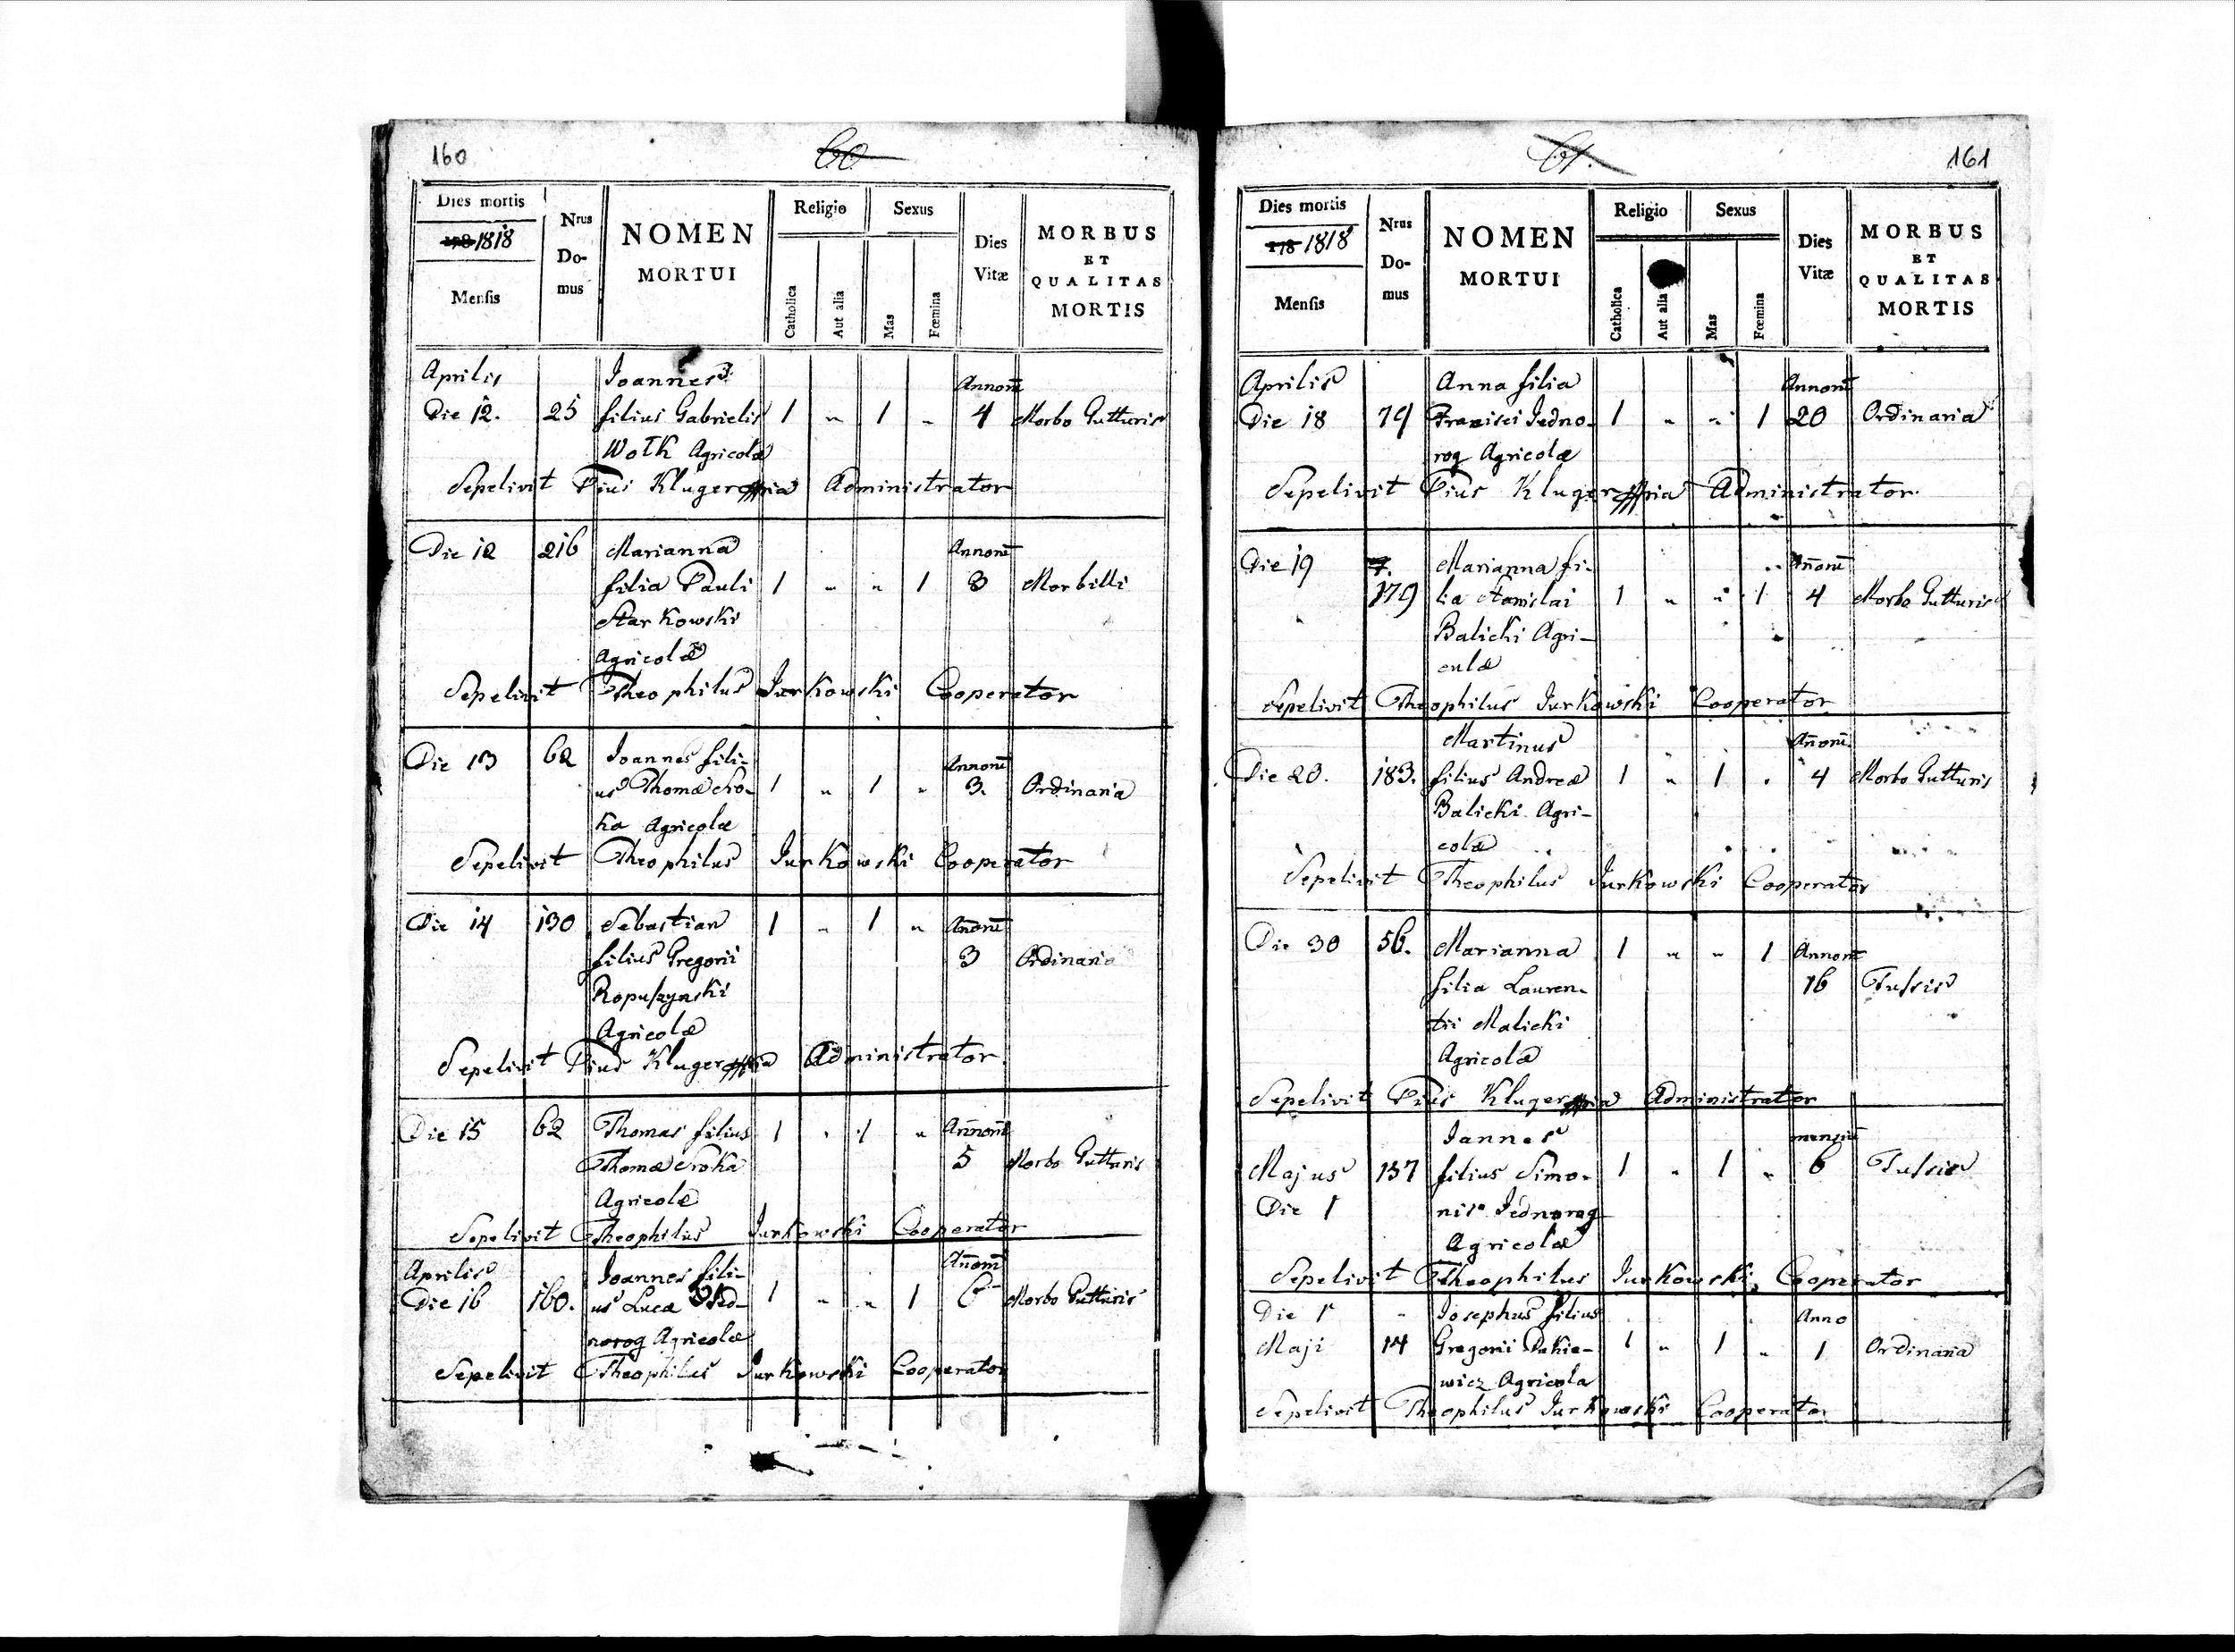 160
60
Dies mortis
178 1818
Mensis
Nrus
Do-
mus
NOMEN
MORTUI
Religio
Catholica
Aut alia
Sexus
Mas
Fœmina
Dies
Vitæ
MORBUS
ET
QUALITAS
MORTIS
Aprilis Joannes Annorū
Die 12. 25 filius Gabrielis 1 „ 1 „ 4 Morbo Gutturis
Wotk Agricolæ
Sepelivit Pius Kluger mpria Administrator
Die 12 216 Marianna Annorū
filia Pauli 1 „ „ 1 3 Morbilli
Starkowski
Agricolæ
Sepelivit Theophilus Jurkowski Cooperator
Die 13 62 Joannes fili- Annorū
us Thomæ Sro- 1 „ 1 „ 3. Ordinaria
ka Agricolæ
Sepelivit Theophilus Jurkowski Cooperator
Die 14 130 Sebastian 1 „ 1 „ Añorū
filius Gregorii 3 Ordinaria
Ropuszynski
Agricolæ
Sepelivit Pius Kluger mpria Administrator.
Die 15 62 Thomas filius 1 „ 1 „ Añnorū
Thomæ Sroka 5 Morbo Gutturis
Agricolæ
Sepelivit Theophilus Jurkowski Cooperator
Aprilis Joannes fili- Añorū
Die 16 160. us Lucæ Jed- 1 „ „ 1 6 Morbo Gutturis
norog Agricolæ
Sepelivit Theophilus Jurkowski Cooperator
61.
161
Dies mortis
178 1818
Mensis
Nrus
Do-
mus
NOMEN
MORTUI
Religio
Catholica
Aut alia
Sexus
Mas
Fœmina
Dies
Vitæ
MORBUS
ET
QUALITAS
MORTIS
Aprilis Anna filia Annorū
Die 18 79 Francisci Jedno- 1 „ „ 1 20 Ordinaria
rog Agricolæ
Sepelivit Pius Kluger mpria Administrator.
Die 19 7. Marianna fi- Añorū
179 lia Stanislai 1 „ „ 1 4 Morbo Gutturis
Balicki Agri-
culæ
Sepelivit Theophilus Jurkowski Cooperator
Martinus Añorū
Die 20. 183. filius Andreæ 1 „ 1 „ 4 Morbo Gutturis
Balicki Agri-
colæ
Sepelivit Theophilus Jurkowski Cooperator
Die 30 56. Marianna 1 „ „ 1 Annorū
filia Lauren- 16 Tussis
tii Malicki
Agricolæ
Sepelivit Pius Kluger mpria Administrator
Jannes mensiū
Majus 137 filius Simo- 1 „ 1 „ 6 Tussis
Die 1 nis Jednorog
Agricolæ
Sepelivit Theophilus Jurkowski Cooperator
Die 1 „ Josephus filius Anno
Maji 14 Gregorii 1 „ 1 „ 1 Ordinaria
wicz Agricola
Sepelivit Theophilus Jurkowski Cooperator